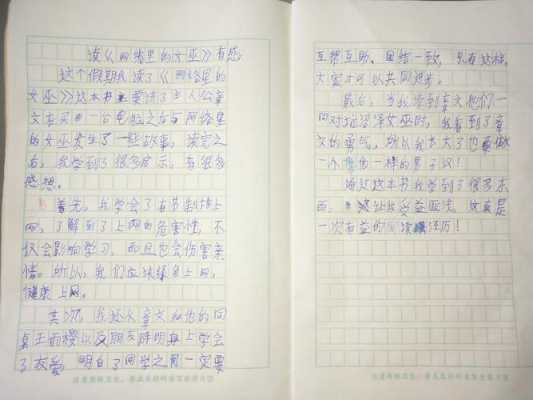 读《网络里的女巫》有感
这个假期我读了《网络里的
女巫》这本书主要讲了主人公童
文在买来一台电脑之后与网络里
的女巫发生了一些故事，读完之
后，我学到了很多启示，有很多
感想。
首先，我学会了有节制地上
网，了解到了上网的危害性，不
仅会影响学习，而且也会伤害亲
情。所以，我们应该绿色上网，
健康上网。
其次，我还从童文和他的同
桌王雨楼以及朋友陈明身上学会
了友爱，明白了同学之间一定要
互帮互助、团结一致，只有这样，
大家才可以共同进步。
最后，当我读到童文他们一
同对抗女巫时，我看到了童
文的勇气，所以我长大了也要做
一个像他一样的男子汉！
通过这本书我学到了很多东
西，受益匪浅，这真是
一次有益的阅读经历！